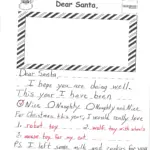 Dear Santa,
Dear Santa,
I hope you are doing well.
This year I have been
Nice Naughty Naughty and Nice
For Christmas this year, I would really love
a robot toy, a toy with wheels
mouse toy for my cat.
P.S. I left some milk and cookies for